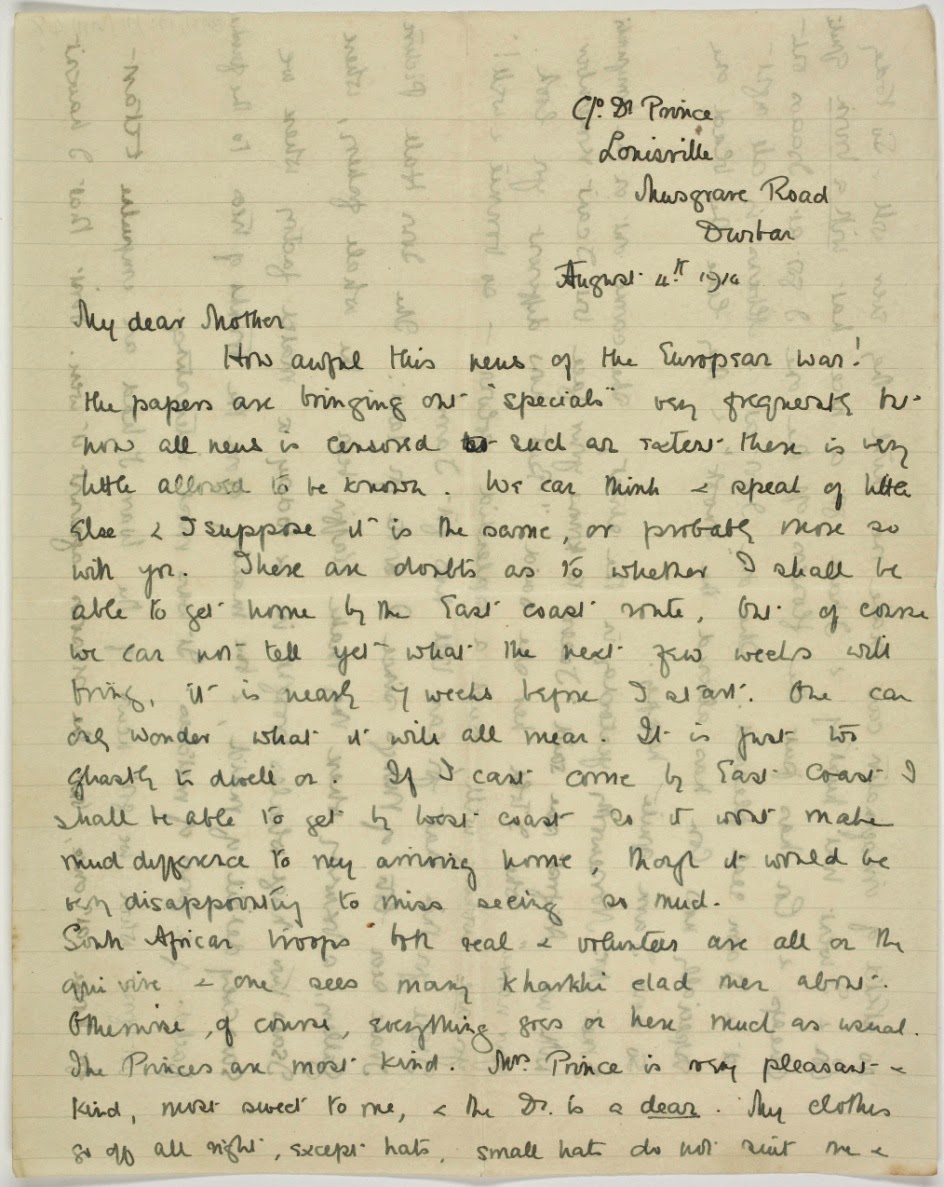 C/o. Dr Prince
Louisville
Musgrave Road
Durban
August 4th 1914
My dear Mother
How awful this news of the European war!
the papers are bringing out "specials" very frequently but
now all news is censored to such an extent there is very
little allowed to be known. We can think & speak of little
else & I suppose it is the same, or probably more so
with you. There are doubts as to whether I shall be
able to get home by the East coast route, but of course
we can not tell yet what the next few weeks will
bring, it is nearly 7 weeks before I start. One can
only wonder what it will all mean. It is just too
ghastly to dwell on. If I cant come by East Coast I
shall be able to get by West coast so it wont make
much difference to my arriving home, though it would be
very disappointing to miss seeing so much.
South African troops both real & volunteer are all on the
qui vive & one sees many kharkhi clad men about.
Otherwise, of course, everything goes on here much as usual.
The Princes are most kind. Mrs. Prince is very pleasant &
kind, most sweet to me, & the Dr. is a dear. My clothes
go off all right, except hats, small hats do not suit me &